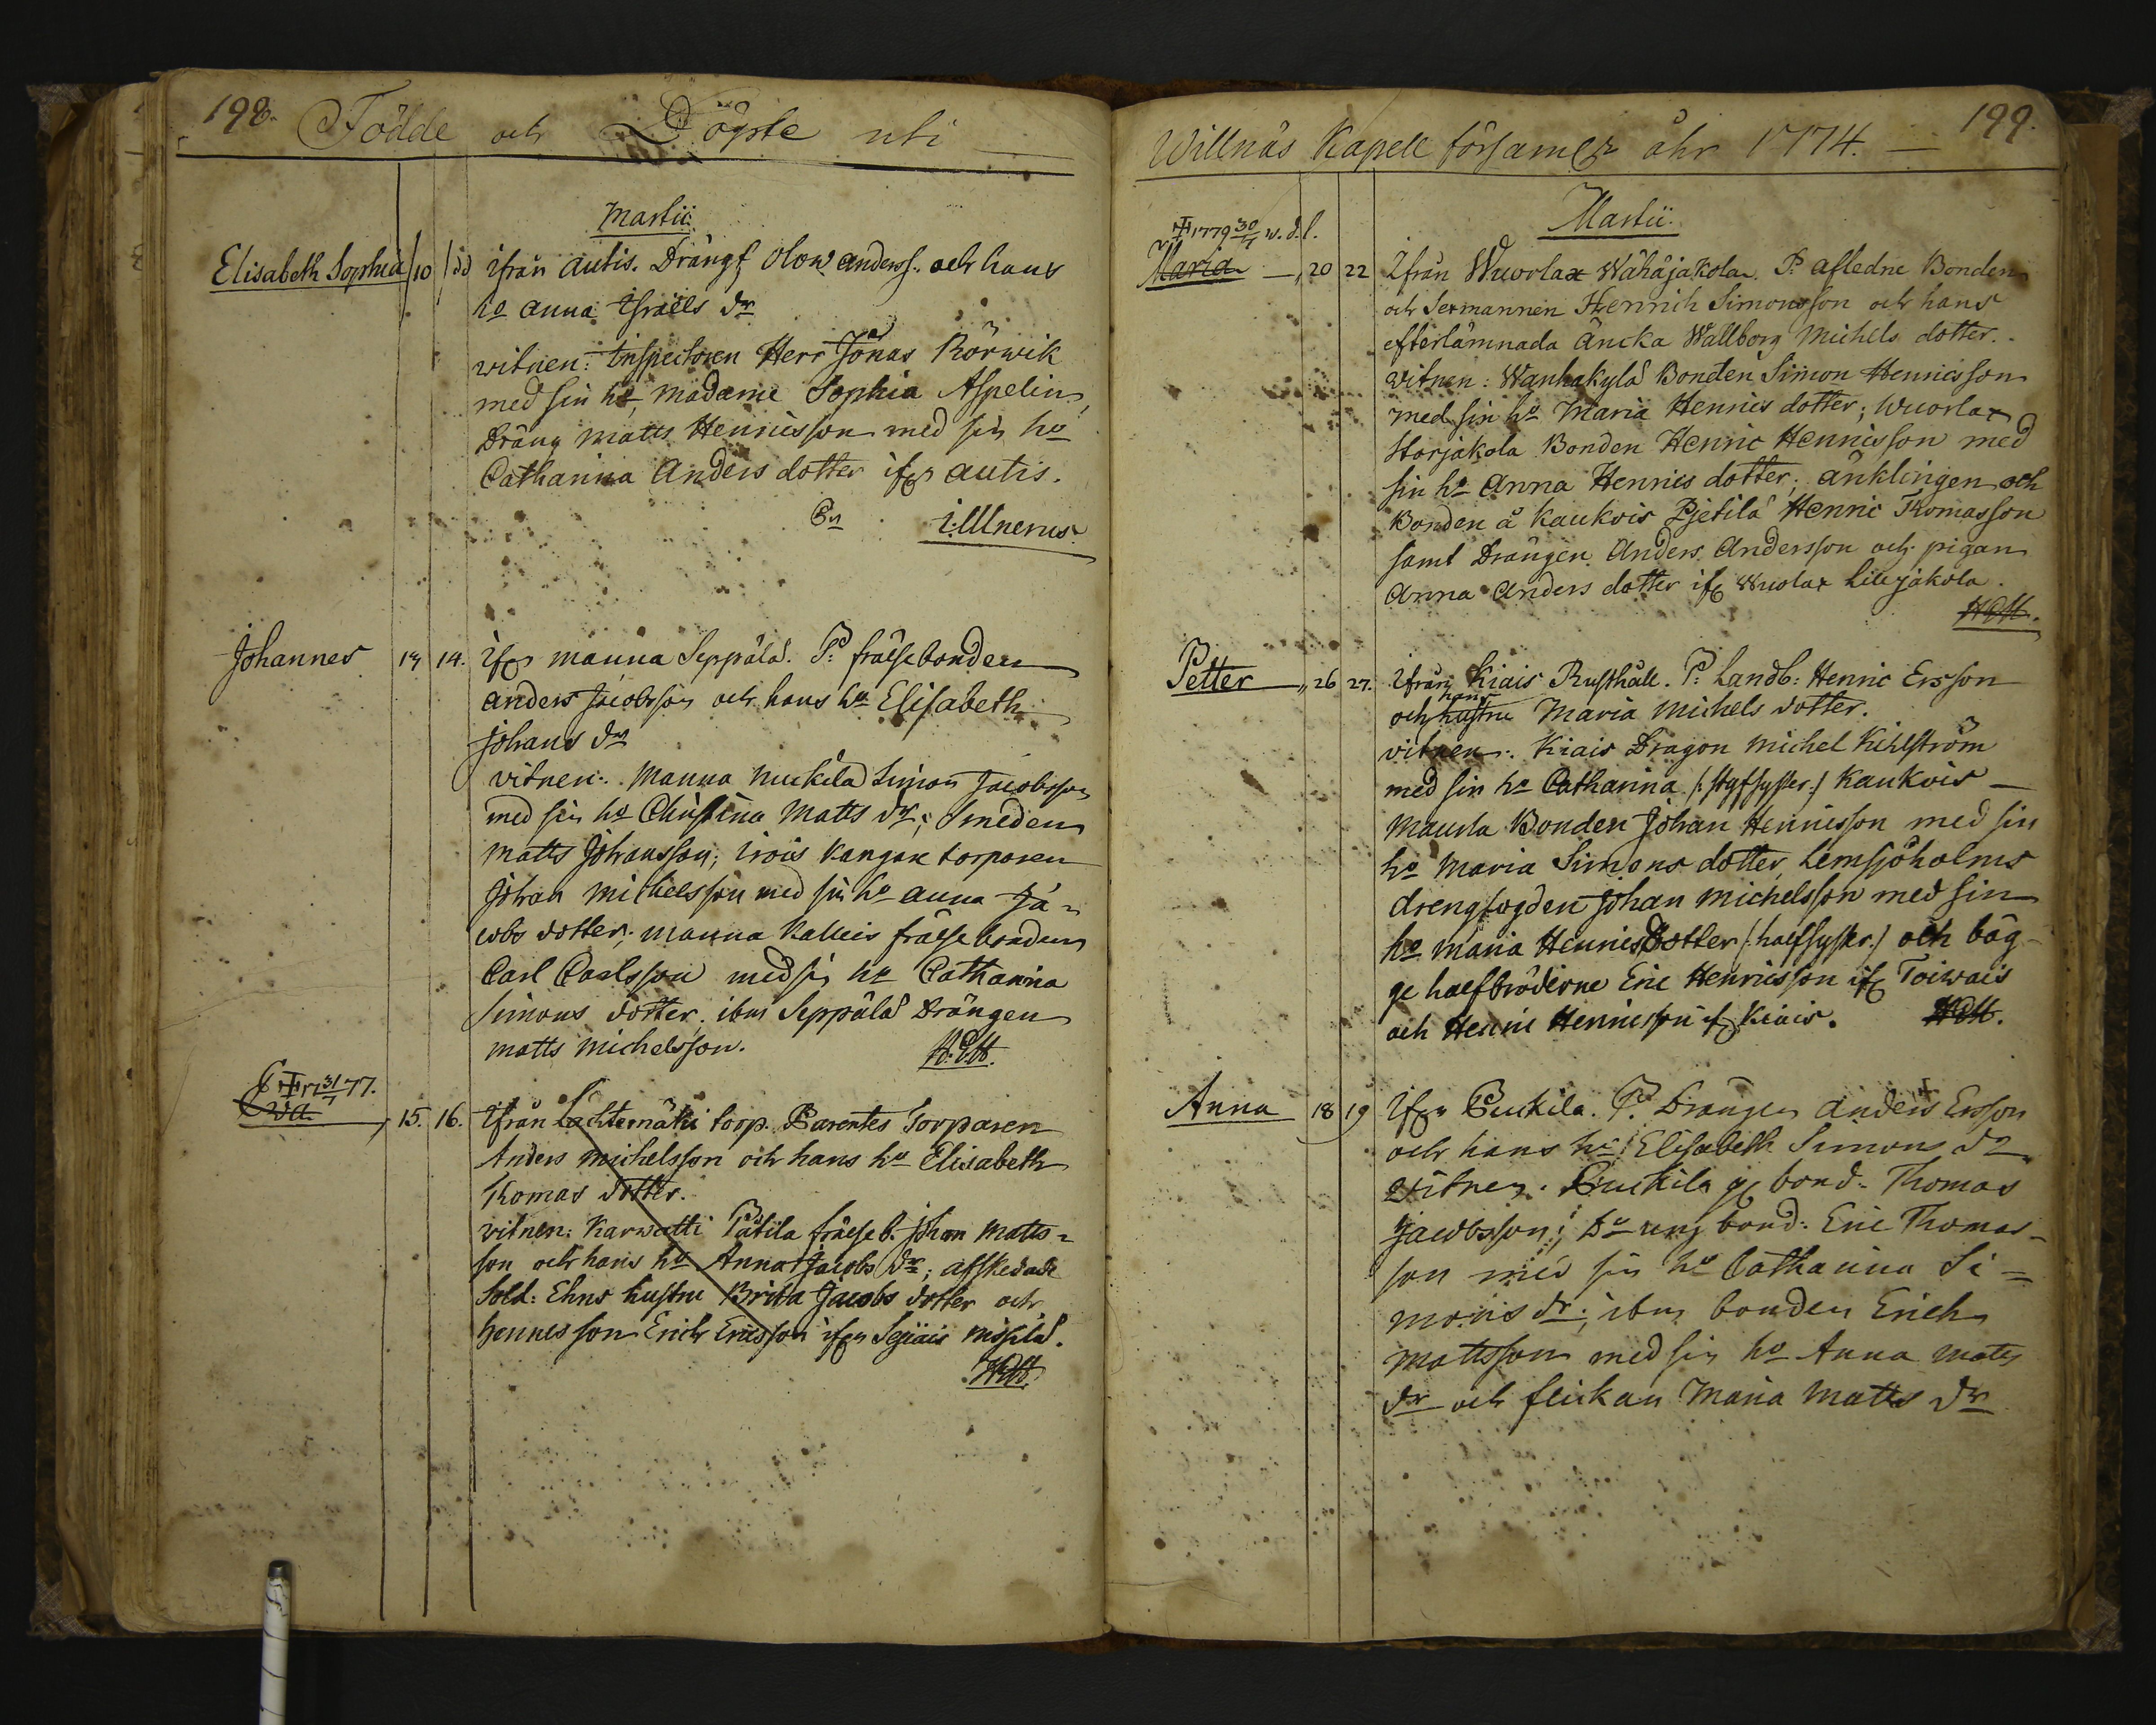 198. Födde och Döpte uti
Martii.
Elisabeth Sophia 10 dd ifrån Autis. Drängf Olow Anderss. och hans
ho Anna Israëls dr
witnen: Inspectoren Herr Jonas Rörwik
med sin ho, Madame Sophia Aspelin,
Dräng Matts Henricsson med sin ho
Catharina Anders dotter ifr Autis.
Illnerus.
Johannes 14. ifr Manna Seppälä. P: frälsebonden
Anders Jacobsson och hans ho Elisabeth
Johans dr
vitnen: Manna Nuckila Simon Jacobsson
med sin ho Christina Matts dr; Smeden
Matts Johansson; Irois Kangare torparen
Johan Michelsson med sin ho Anna Ja=
cobs dotter; Manna Kalleis frälsebonden
Carl Carlsson med sin ho Catharina
Simons dotter, ibm Seppälä Drängen
Matts Michelsson.
17 31/7 77.
Eva 15. 16. Ifrån Lachtemäki torp. Parentes Torparen
Anders Michelsson och hans ho Elisabeth
Thomas dotter.
vitnen: Karwatti Pätila frälseb. Johan Matts=
son och hans ho Anna Jacobs dr; afskedade
Sold: Ehns hustru Brita Jacobs dotter och
hennes son Erich Ericsson ifrn
Willnäs Kapell församlr åhr 1774. 199.
Martii.
1779 30/7 w.d.l.
Maria 20 22 Ifrån Wuorlax Wähäjakola. P. afledne Bonden
och Sexmannen Henrich Simonsson och hans
efterlämnada äncka Wallborg Michels dotter.
vitnen: Wanhakylä Bonden Simon Henricsson
med sin ho Maria Henrics dotter; Wuorlax
Storjakola Bonden Henric Henricsson med
sin ho Anna Henrics dotter; änklingen och
Bonden å Kaukois Pjetilä Henric Thomasson
samt Drängen Anders Andersson och pigan
Anna Anders dotter ifr Wuolax Lillejakola.
Petter 26 27. Ifrån Kiais Rusthåll. P: Landb: Henric Ersson
och hans hustru Maria Michels dotter.
vitnen: Kiais Dragon Michel Kihlström
med sin ho Catharina (: styfsyster :) Kaukois
Maunla Bonden Johan Henricsson med sin
ho Maria Simons dotter, Lemsjöholms
drengfogden Johan Michelsson med sin
ho Maria Henrics Dotter (: halfsyster :) och båg-
ge halfbröderne Eric Henricsson ifr Toiwais
och Henric Henricsson ifr Kiais.
Anna 18 19 Ifrn Puckila. P. Drängen Anders Ersson
och hans ho Elisabeth Simons dr
Witnen. Puckila gl bond. Thomas
Jacobsson; Do ung bond: Eric Thomas-
son med sin ho Catharina Si=
mons dr; ibm bonden Erich
Mattsson med sin ho Anna Matts
dr och flickan Maria Matts dr